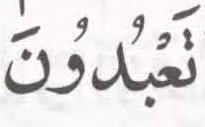 تَعْبُدُونَ